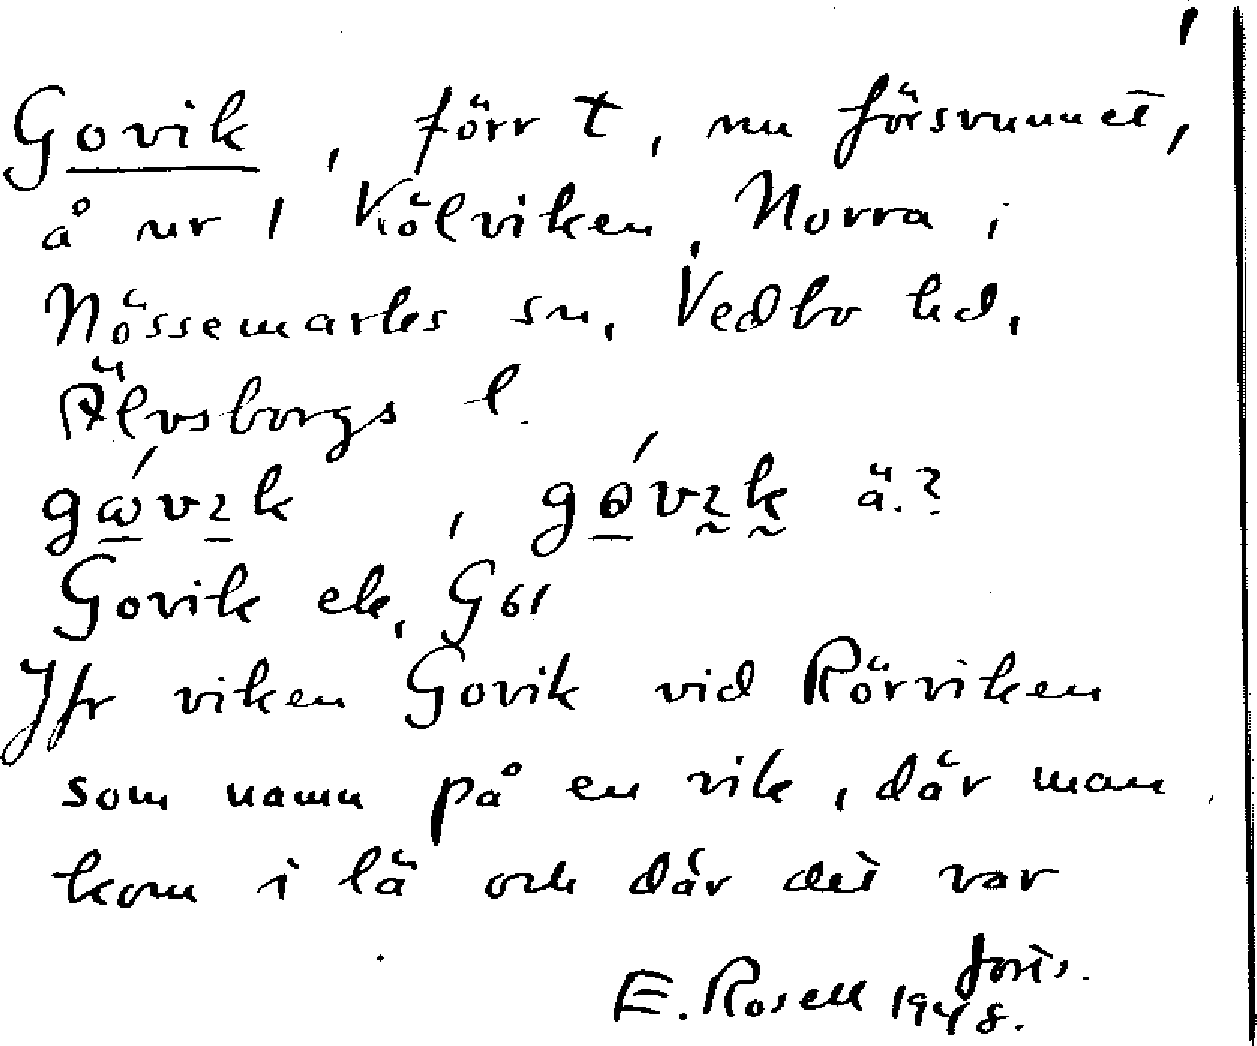 1
Govik, förr t, nu försvunnet,
å nr 1 Kölviken, Norra i
Nössemarks sn, Vedbo hd,
Älvsborgs l.
gώvık, gɵ́vık ä.?
Govik ek, G 61
Jfr viken Govik vid Rörviken
som namn på en vik, där man
kom i lä och där det var
forts.
E. Rosell 1948.